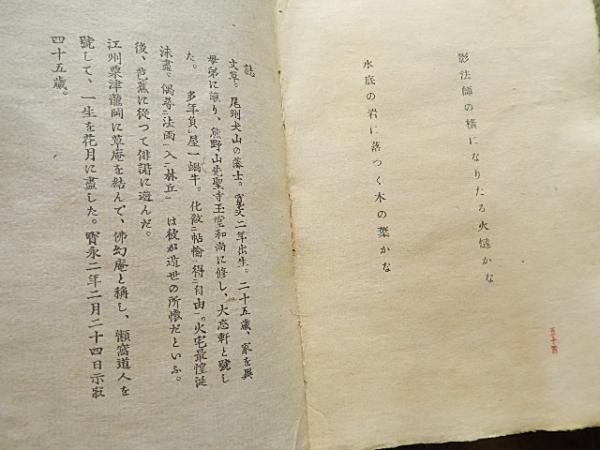 影法師の横になりたる火燵かな
水底の岩に落つく木の葉かな
五十四
誌
丈草。尾州犬山の藩士。寛文二年出生。二十五歳、家を異
母弟に讓り、熊野山先聖寺玉堂和尚に修し、大忘軒と號し
た。　多年負レ屋一蝸牛。化做二蛞蝓一得二自由一。火宅最惶涎
沫盡。偶尋二法雨一入二林丘一　は彼が遁世の所懷だといふ。
後、芭蕉に從つて俳諧に遊んだ。
江州粟津龍岡に草庵を結んで、佛幻庵と稱し、懶窩道人を
號して、一生を花月に盡した。寶永二年二月二十四日示寂
四十五歳。